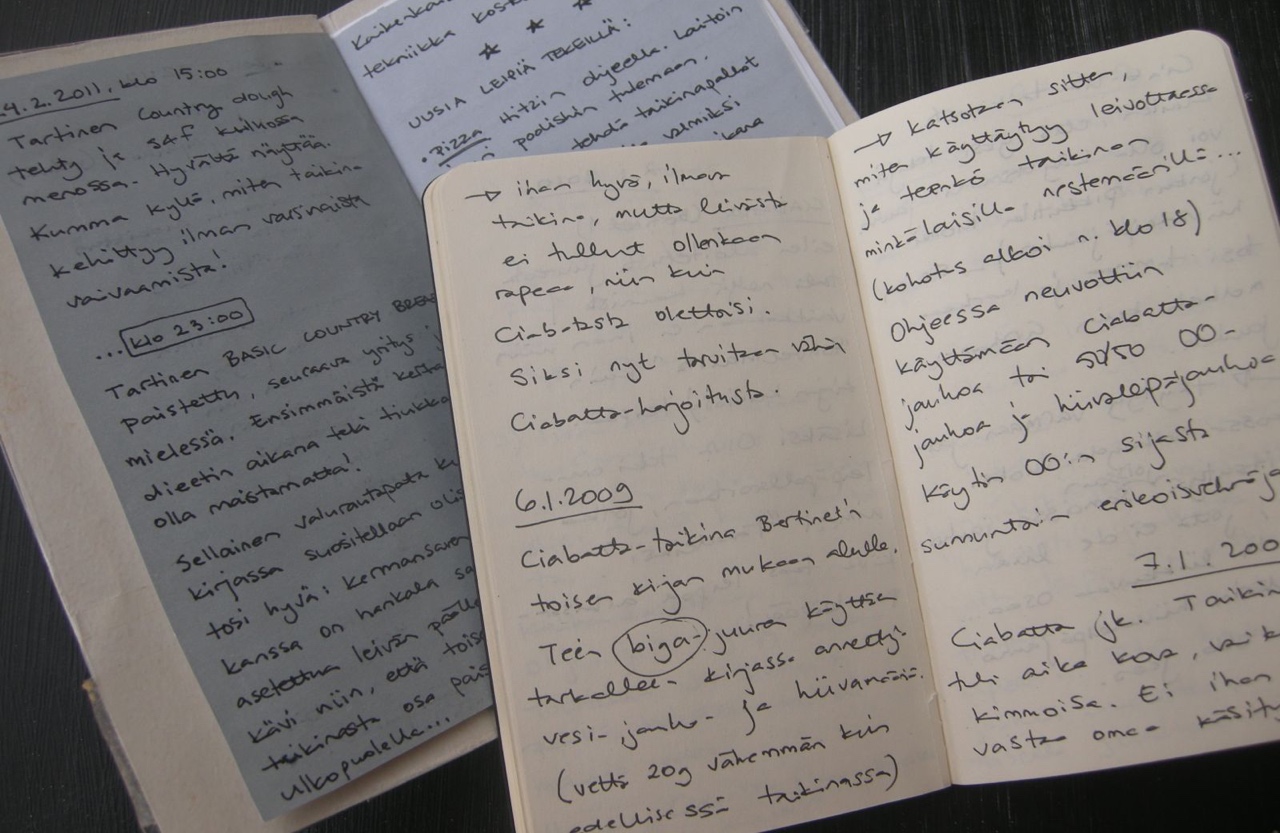 4.2.2011, klo 15:00
Tartinen Country dough
tehty ja s&f kulkossa
menossa. Hyvältä näyttää.
Kumma kyllä, miten taikina
kehittyy ilman varsinaista
vaivaamista!
... klo 23:00
Tartinen BASIC COUNTRY BREAD
paistettu, seuraava yritys
mielessä. Ensimmäistä kertaa
dieetin aikana teki tiukkaa
olla maistamatta!
Sellainen valurautapata
kirjassa suositellaan olisi
tosi hyvä: kermansaven
kanssa on hankala
asetettua leivän päälle
kävi niin, että toise
taikinasta osa
ulkopuolella...
tekniikka
★ ★
UUSIA LEIPIÄ TEKEILLÄ:
• Pizza Hitzin ohjeella. Laitoin
poolishin tulemaan.
tehdä taikinapallot
valmiiksi
→ ihan hyvä, ilman
taikina, mutta leivästä
ei tullut ollenkaan
rapeaa, niin kuin
Ciabatasta olettaisi.
Siksi nyt tarvitaan vähän
Ciabatta-harjoitusta.
6.1.2009
Ciabatta-taikina Bertinet'n
toisen kirjan mukaan alulle.
Teen biga-juuren käyttäen
tarkalleen kirjassa annettuja
vesi- jauho- ja hiivamääriä.
(vettä 20g vähemmän kuin
edellisessä taikinassa)
→ katsotaan sitten,
miten käyttäytyy leivottaessa
ja teenkö taikinan
minkälaisilla nestemäärillä...
(kohotus alkoi n. klo 18)
Ohjeessa neuvottiin
käyttämään Ciabatta-
jauhoa tai 50/50 00-
jauhoa ja hiivaleipäjauhoa
Käytin 00:n sijasta
sunnuntain erikoisvehnäj
7.1.200
Ciabatta jk. Taikin
tuli aika kova, vaik
kimmoisa. Ei ihan
vasta oma käsity